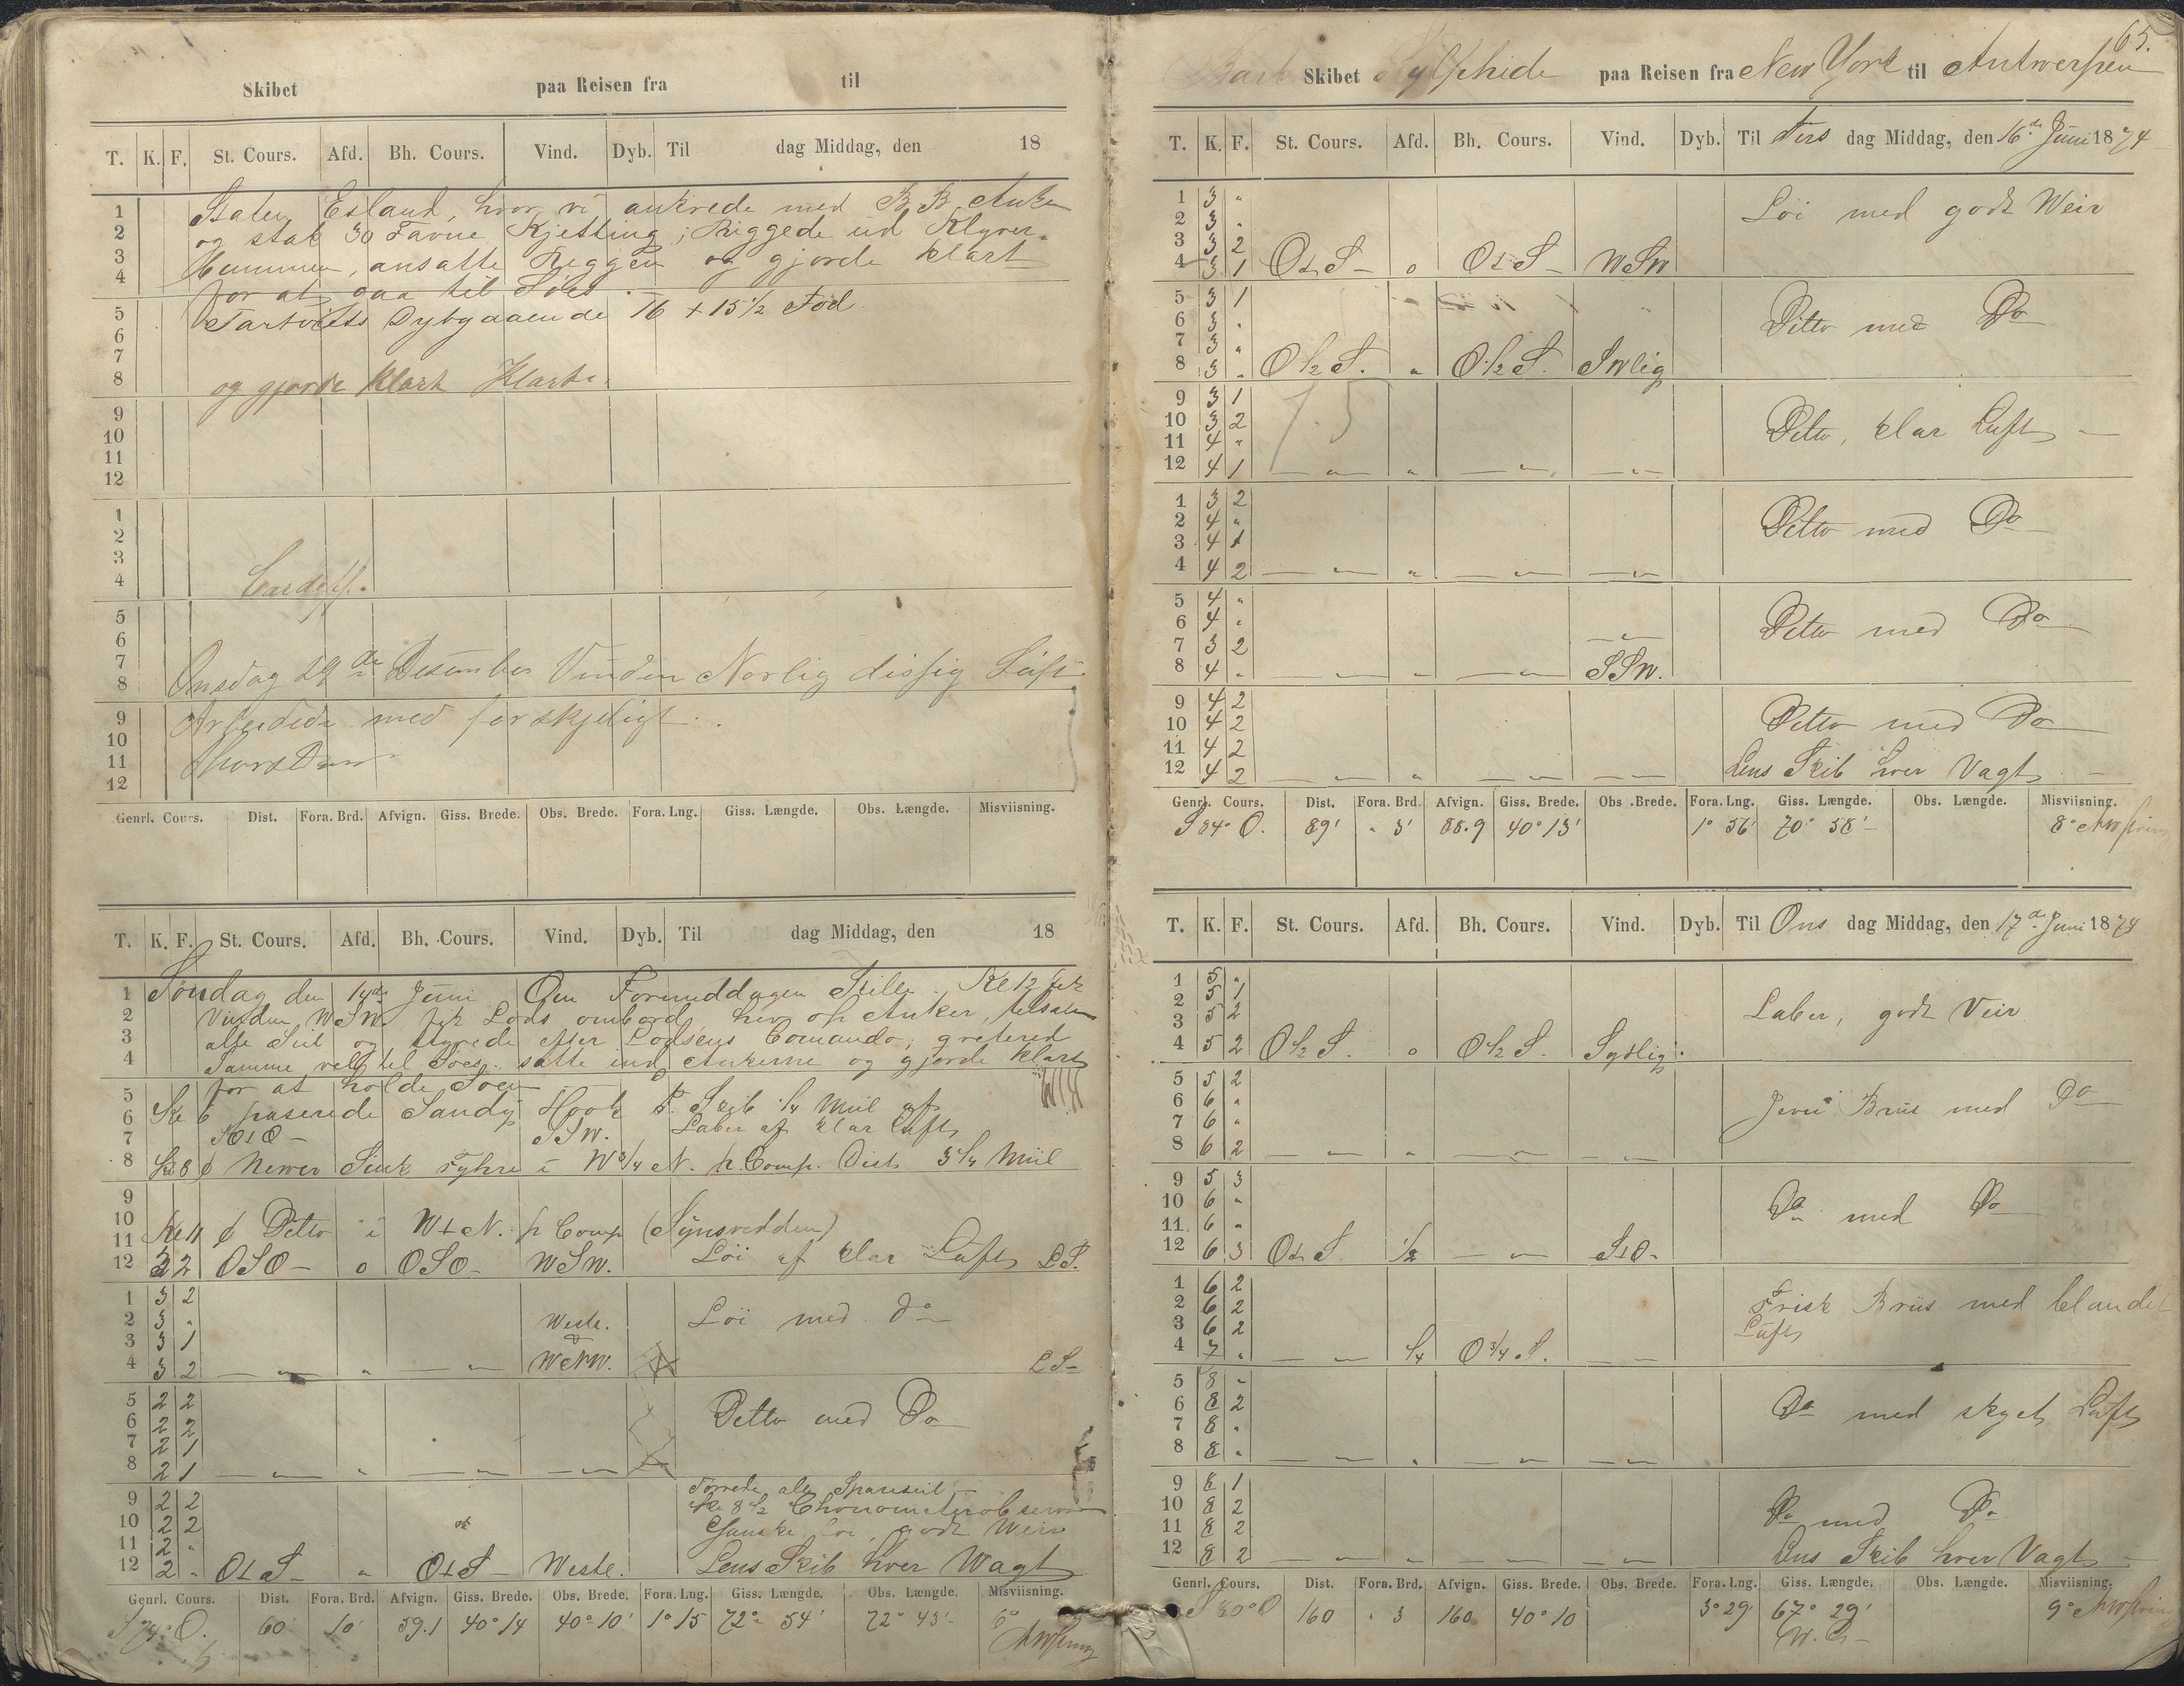 Skibet paa Reisen fra til
T. K. F. St. Cours. Afd. Bh. Cours. Vind. Dyb. Til dag Middag, den 18
1 Staten Esland, hvor vi ankrede med B. B. Anker
2 og stak 30 Favne Kjetting; Riggede ud Klyver-
3 Bommen, ansatte Riggen og gjorde klart
4 for at gaa til Søes.
5 Fartøiets Dybgaaende 16 + 15 1/2 Fod
6
7
8 og gjorde klart Klart
9
10
11
12
1
2
3
4 Cardiff.
5
6
7
8 Onsdag 29de Desember Vinden Norlig dissig Luft
9 Arbeidede med forskjeligt
10
11
12
Genrl. Cours. Dist. Fora. Brd. Afvign. Giss. Brede. Obs. Brede. Fora. Lng. Giss. Længde. Obs. Længde. Misviisning.
T. K. F. St. Cours. Afd. Bh. Cours. Vind. Dyb. Til dag Middag, den 18
1 Søndag den 14de Juni Om Formiddagen Stille. Kl 12 fik
2 Vinden WSW. fik Lods ombord, hev op Anker, tilsatte
3 alle Seil og styrede efter Lodsens Comando;
4 Samme vel til Søes. satte ind Ankerne og gjorde klart
5 for at holde Søen
6 Kl 6 paserede Sandy Hook F. Skib 1/4 Miil af
7 SSW. Laber af klar Luft
8 Kl 8 Never Sink Fyhre i W 3/4 N. p. Comp. Dist 3 1/4 Miil
9
10
11 Kl 11 Ditto i W t N. p Comp (Synsvidden)
12 3 2 OSO o OSO WSW. Löi af klar Luft L S.
1 3 2
2 3 " Westl. Löi med Do
3 3 1
4 3 2 WNW. L S
5 2 2
6 2 2 Ditto med Do
7 2 1
8 2 1
Tørrede alle Spanseil
9 2 2 Kl 8 1/2 Chronometerobserv
10 2 2 Ganske löi, godt Weir
11 2 "
12 2 " O t S " O t S Westl. Lens Skib hver Wagt
Genrl. Cours. Dist. Fora. Brd. Afvign. Giss. Brede. Obs. Brede. Fora. Lng. Giss. Længde. Obs. Længde. Misviisning.
60' 10' 59.1 40° 14 40° 10' 1° 15 72° 54' 72° 43' 6°
65.
Bark Skibet Sylphide paa Reisen fra New York til Antwerpen
T. K. F. St. Cours. Afd. Bh. Cours. Vind. Dyb. Til Tirs dag Middag, den 16de Juni 1874
1 3 " Löi med godt Weir
2 3 "
3 3 2
4 3 1 O t S o O t S WSW
5 3 1 Ditto med Do
6 3 "
7 3 "
8 3 " O 1/2 S. " O 1/2 S. SWlig
9 3 1 15
10 3 2 Ditto, klar Luft
11 4 "
12 4 1
1 3 2
2 4 " Ditto med Do
3 4 1
4 4 2
5 4 "
6 4 " Ditto med Do
7 3 2
8 4 " SSW.
9 4 2
10 4 2 Ditto med Do
11 4 2
12 4 2 Lens Skib hver Vagt
Genrl. Cours. Dist. Fora. Brd. Afvign. Giss. Brede. Obs. Brede. Fora. Lng. Giss. Længde. Obs. Længde. Misviisning.
S 84° O. 89' " 3' 88.9 40° 13' 1° 56' 70° 58' 8°
T. K. F. St. Cours. Afd. Bh. Cours. Vind. Dyb. Til Ons dag Middag, den 17de Juni 1874
1 5 "
2 5 1 Laber, godt Veir
3 5 2
4 5 2 O 1/2 S. o O 1/2 S. Sydlig.
5 5 2
6 6 " Jevn Briis med Do
7 6 "
8 6 2
9 5 3
10 6 " Do med Do
11 6 "
12 6 3 O t S 1/2 S t O
1 6 2 Frisk Briis med blandet
2 6 2 Luft
3 6 2
4 7 " 1/4 O 3/4 S.
5 8 "
6 8 2 Do med skyet Luft
7 8 "
8 8 "
9 8 1
10 8 2 Do med Do
11 8 2
12 8 2 Lens Skib hver Vagt
Genrl. Cours. Dist. Fora. Brd. Afvign. Giss. Brede. Obs. Brede. Fora. Lng. Giss. Længde. Obs. Længde. Misviisning.
S 80° O 160 " 3 160 40° 10 3° 29' 67° 29' 9°